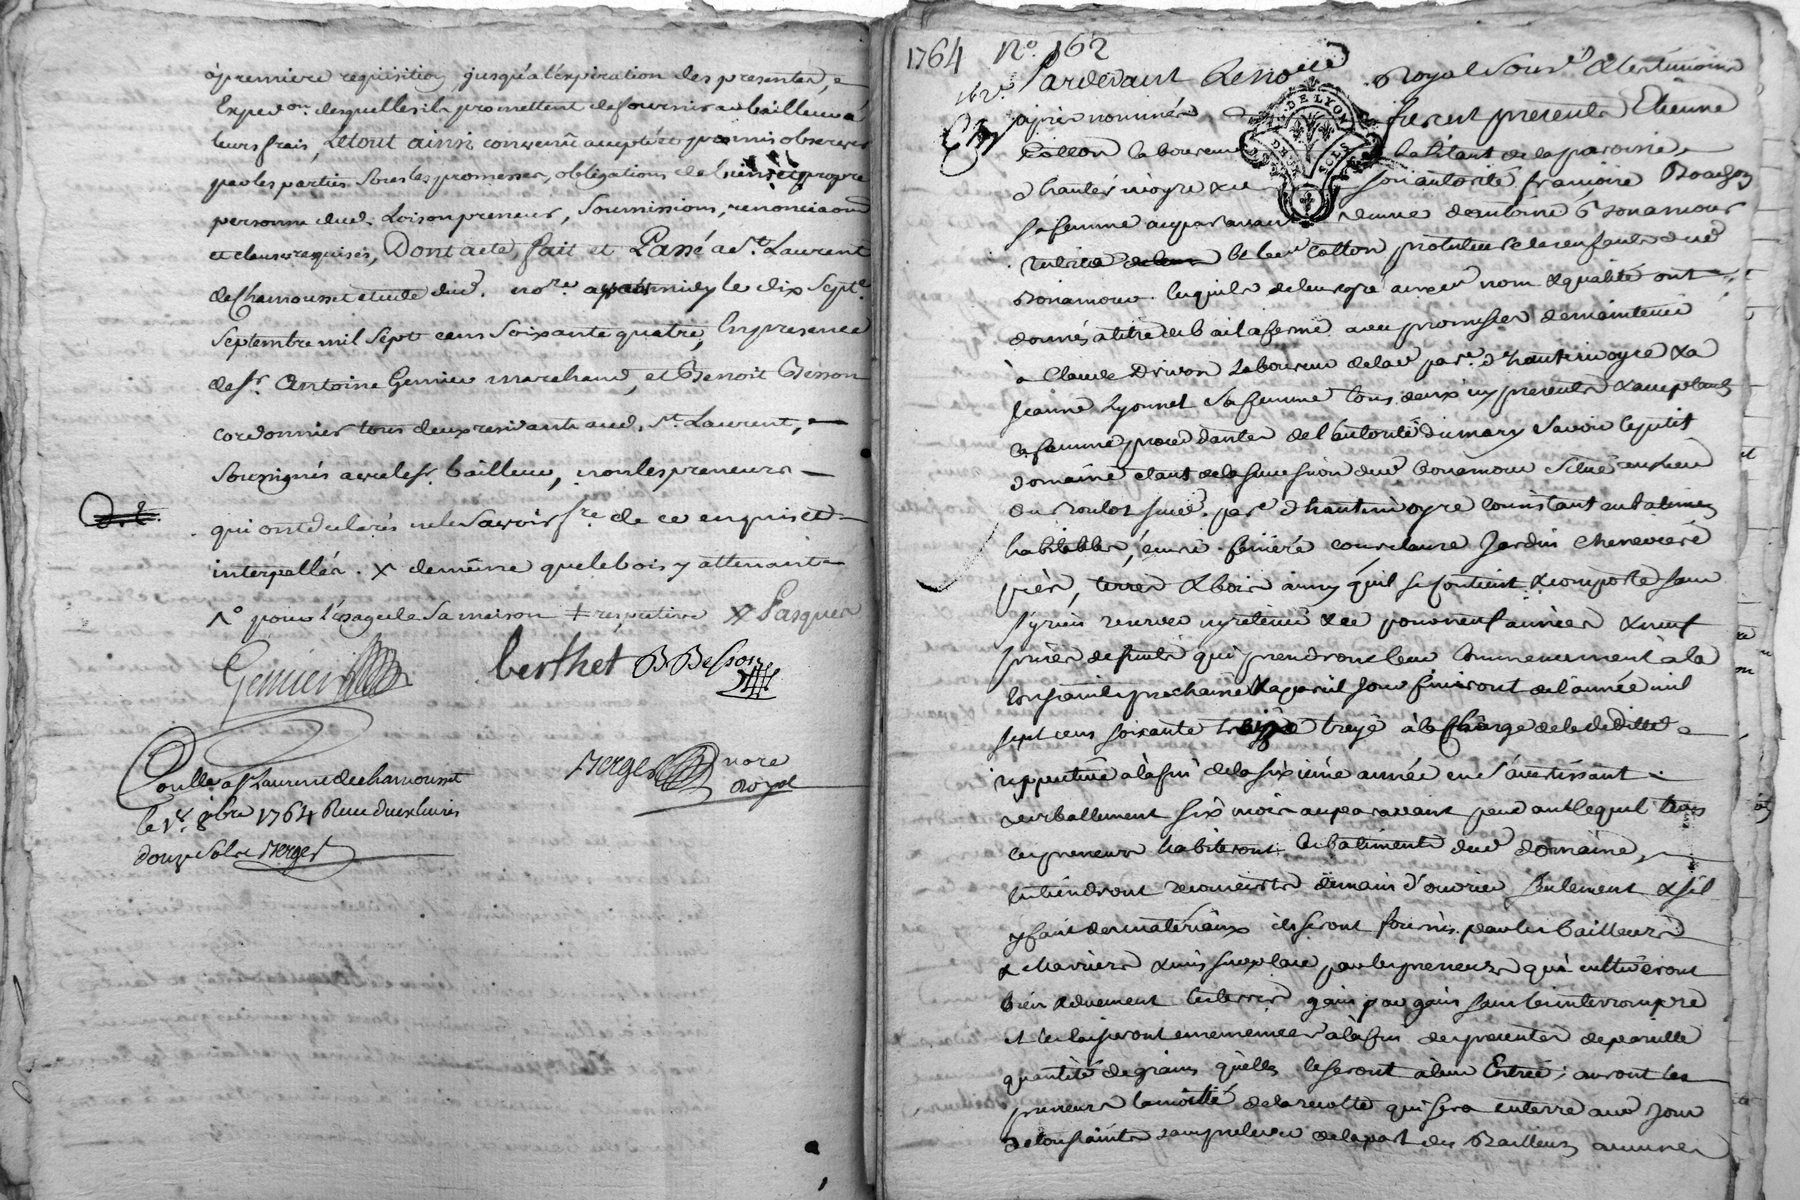 à premiere requisition jusqu'a l'expiration des presentes,
Exped.on desquelles ils promettent de fournir au bailleur a
leurs frais, Le tout ainsi convenu accepté et promis observer
par les parties sous les promesses, obligations de biens et propre
personne dud. Loison preneur, Soumissions, renonciaõns
et clauses requises, Dont acte, fait et Passé a St. Laurent
de Chamousset etude dud. no.re apres midy le dix Sept.e
Septembre mil Sept cens Soixante quatre, En presence
de Sr. Antoine Genieu marchand, et Benoit Besson
cordonnier tous deux residants aud. St. Laurent,
Soussignés avec le Sr. bailleur, non les preneurs
qui ont declarés ne le Savoir fre. de ce enquis et
interpellés. x de meme que le bois y attenant
1° pour l'usage de Sa maison ‡ respective x Pasques
Genieu
berthet B Besson
Berger nore
Royal
Conllé a St Laurent de chamousset
le 1er 8bre 1764 Receu deux livres
douze Sols Berger
1764 No. 162
Pardevant Le no.re Royal Sous.é & les temoins
après nommés furent presents Etienne
Cotton laboureur habitant de la paroisse
d'hauterivoyre & de son autorité françoise
sa femme auparavant veuve d'antoine Bonamour
le d. Cotton protuteur des enfants dud.
Bonamour lesquels de leur gre auxd. nom & qualité ont
donnés a titre de bail a ferme avec promesse de maintenir
a Claude Drivon Laboureur de lad. par.e d'hauterivoyre & a
Jeanne Lyonnet Sa femme tous deux icy presents & acceptants
la femme procedante de l'autorité du mary Savoir le petit
domaine etant de la succession dud. bonamour Situé au lieu
du Boulos sud. par.e d'hauterivoyre Consistant en batiments
habitables, ecurie feniere cour & aire Jardin Cheneviere
prés, terres & bois ainsy qu'il se contient & comporte sans
s'y rien reserver ny retenir & ce pour neuf années & neuf
prises de fruits qui prendront leur Commencement a la
toussaint prochaine & a pareil jour finiront de l'année mil
sept cens soixante treize a la Charge de la deditte
respective a la fin de la sixieme année en s'avertissant
verballement six mois auparavant pendant lequel tems
les preneurs habiteront les batiments dud. domaine,
entretiendront de mains d'ouvrier seulement & s'il
y faut des materiaux ils seront fournis par les bailleurs
& charriés & mis sur place par les preneurs qui cultiveront
bien & duement les terres gain par gain sans les interrompre
et les laisseront ensemencées a la fin des presentes de pareille
quantité de grains qu'elles le seront a leur Entrée; auront les
preneurs la moitié de la recolte qui sera en terre aud. jour
de toussaints sans prelever de la part des Bailleurs aucunes